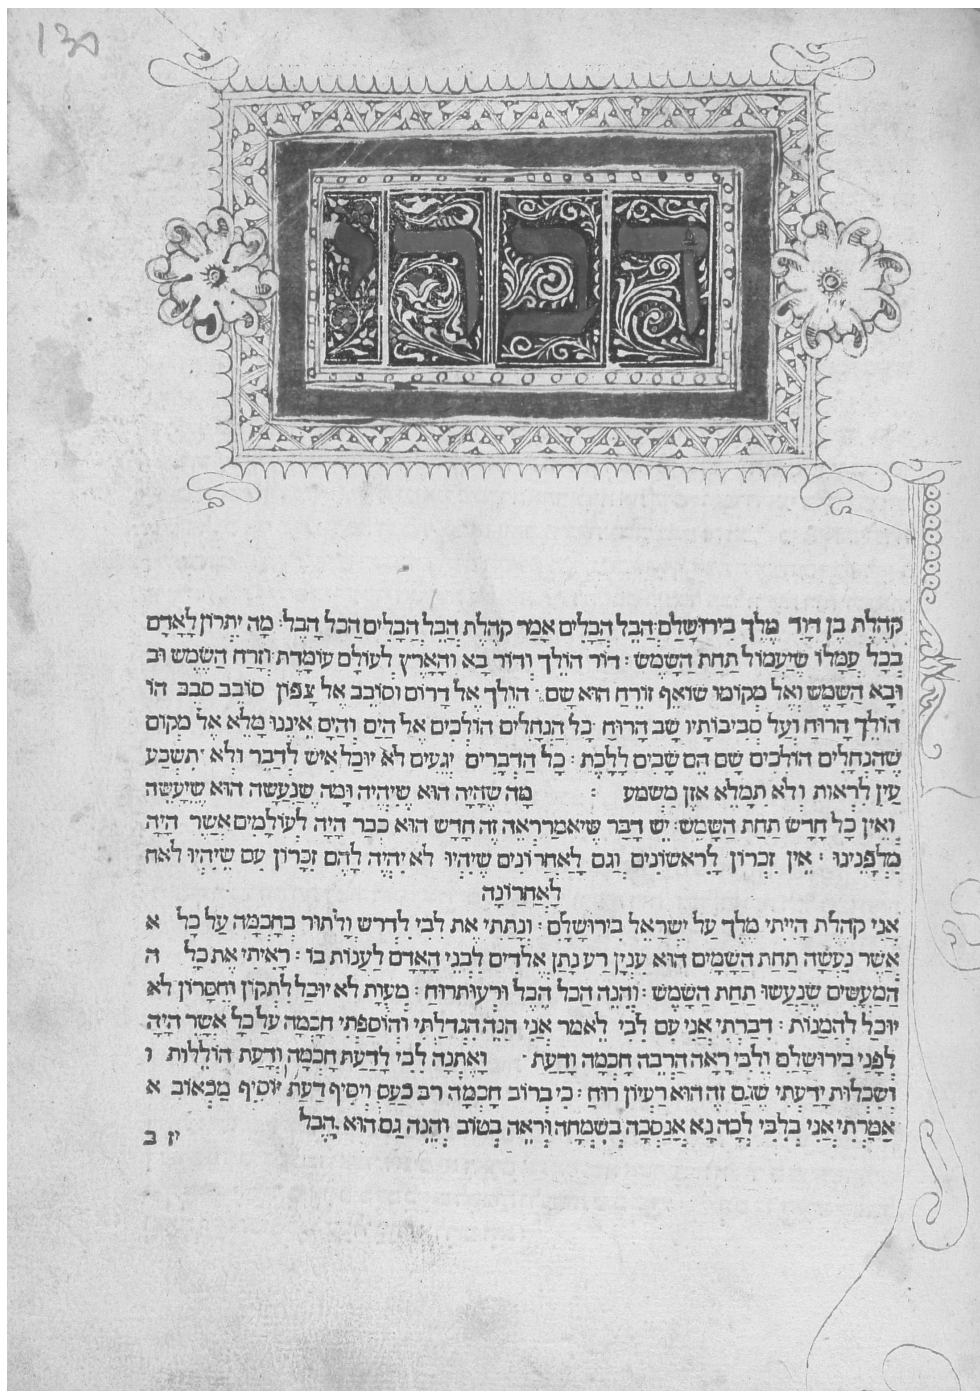 130
דברי
קהלת בן דָוִד מֶלֶךְ בִירוּשָׁלַםִ׃ הֲבֵל הֲבָלִים אָמַר קהֶלֶת הֲבֵל הֲבָלִים הַכל הָבֶל׃ מָה יִתְרוֹן לָאָדָם
בְכָל עֲמָלוֹ שֶיַעֲמוֹל תַחַת הַשָמֶש׃ דוֹר הוֹלֵךְ וְדוֹר בָא וְהָאָרֶץ לְעוֹלָם עוֹמָדֶת׃ וְזָרַח הַשֶמֶש וב
וּבָא הַשָמֶש וְאֶל מְקוֹמוֹ שוֹאֵף זוֹרֵחַ הוּא שָם׃ הוֹלֵךְ אֶל דָרוֹם וְסוֹבֵב אֶל צָפוֹן סוֹבֵב סבֵב הוֹ
הוֹלֵךְ הָרוּחַ וְעַל סְבִיבוֹתָיו שָב הָרוּחַ׃ כָל הַנְחָלִים הוֹלְכִים אֶל הַיָם וְהַיָם אֵינֶנוּ מָלֵא אֶל מְקוֹם
שֶהַנְחָלִים הוֹלְכִים שָם הֵם שָבִים לָלָכֶת׃ כָל הַדְבָרִים יְגֵעִים לא יוּכַל אִיש לְדַבֵר וְלא תִשְבַע
עַיִן לִרְאוֹת וְלא תִמָלֵא אזֶן מִשְמעַ ׃ מַה שֶהָיָה הוּא שֶיִהְיֶה וּמַה שֶנַעֲשָה הוּא שֶיֵעָשֶה
וְאֵין כָל חָדָש תַחַת הַשָמֶש׃ יֵש דָבָר שֶיאמַר רְאֵה זֶה חָדָש הוּא כְבָר הָיָה לְעוֹלָמִים אֲשֶר הָיָה
מִלְפָנֵינוּ׃ אֵין זִכְרוֹן לָרִאשוֹנִים וְגַם לָאַחֲרוֹנִים שֶיִהְיוּ לא יִהְיֶה לָהֶם זִכָרוֹן עִם שֶיִהְיוּ לאח
לָאַחֲרוֹנָה
אֲנִי קהֶלֶת הָיִיתִי מֶלֶךְ עַל יִשְרָאֵל בִירוּשָלִָם׃ וְנָתַתִי אֶת לִבִי לִדְרש וְלָתוּר בַחָכְמָה עַל כָל א
אֲשֶר נַעֲשָה תַחַת הַשָמָיִם הוּא עִנְיַן רַע נָתַן אֱלֹדִים לִבְנֵי הָאָדָם לַעֲנוֹת בוֹ׃ רָאִיתִי אֶת כָל ה
הַמַעֲשִים שֶנַעֲשוּ תַחַת הַשָמֶש׃ וְהִנֵה הַכל הֶבֶל וּרְעוּת רוּחַ׃ מְעֻוָת לא יוּכַל לִתְקוֹן וְחֶסְרוֹן לא
יוּכַל לְהִמָנוֹת׃ דִבַרְתִי אֲנִי עִם לִבִי לֵאמר אֲנִי הִנֵה הִגְדַלְתִי וְהוֹסַפְתִי חָכְמָה עַל כָל אֲשֶר הָיָה
לְפָנַי בִירוּשָלִַם וְלִבִי רָאָה הַרְבֵה חָכְמָה וָדָעַת׃ וָאֶתְנָה לִבִי לָדַעַת חָכְמָה וְדַעַת הוֹלֵלוּת ו
וְשִכְלוּת יָדַעְתִי שֶגַם זֶה הוּא רַעְיוֹן רוּחַ׃ כִי בְרוֹב חָכְמָה רב כַעַס וְיוֹסִיף דַעַת יוֹסִיף מַכְאוֹב א
אָמַרְתִי אֲנִי בְלִבִי לְכָה נָא אֲנַסְכָה בְשִמְחָה וּרְאֵה בְטוֹב וְהִנֵה גַם הוּא הָבֶל
יז ב